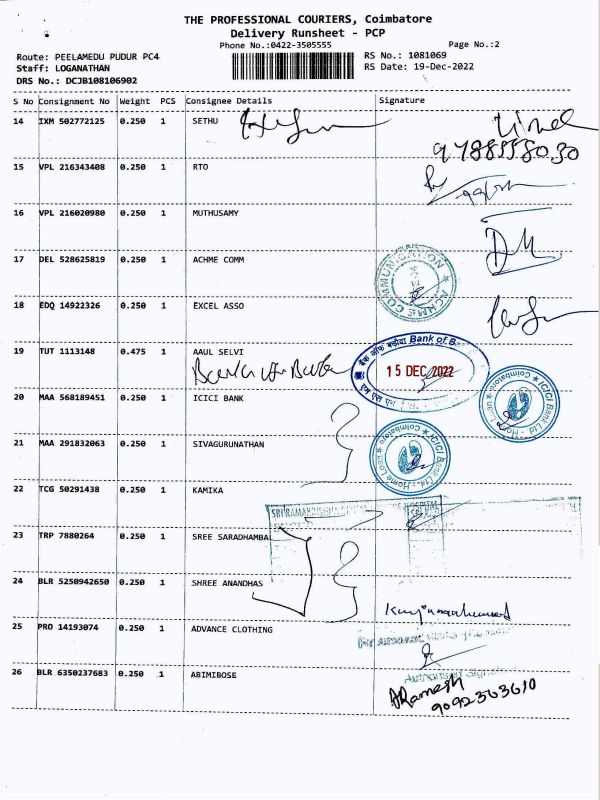 THE PROFESSIONAL COURIERS, Coimbatore
Delivery Runsheet - PCP
Phone No.:0422-3505555
Page No.:2
Route: PEELAMEDU PUDUR PC4
RS No.: 1081069
Staff: LOGANATHAN
RS Date: 19-Dec-2022
DRS No.: DCJB108106902
S No Consignment No Weight PCS Consignee Details Signature
14 IXM 502772125 0.250 1 SETHU
9788558030
15 VPL 216343408 0.250 1 RTO
16 VPL 216020980 0.250 1 MUTHUSAMY
17 DEL 528625819 0.250 1 ACHME COMM
ACHME COMMUNICATION
18 EDQ 14922326 0.250 1 EXCEL ASSO
19 TUT 1113148 0.475 1 AAUL SELVI
बैंक ऑफ बड़ौदा Bank of
15 DEC 2022
20 MAA 568189451 0.250 1 ICICI BANK
ICICI Bank Ltd. Coimbatore
21 MAA 291832063 0.250 1 SIVAGURUNATHAN
ICICI Bank Ltd. - Home Coimbatore
22 TCG 50291438 0.250 1 KAMIKA
HOSPITAL
23 TRP 7880264 0.250 1 SREE SARADHAMBAL
24 BLR 5250942650 0.250 1 SHREE ANANDHAS
25 PRO 14193074 0.250 1 ADVANCE CLOTHING
26 BLR 6350237683 0.250 1 ABIMIBOSE
Authorised Sign
ARamesh
9092363610